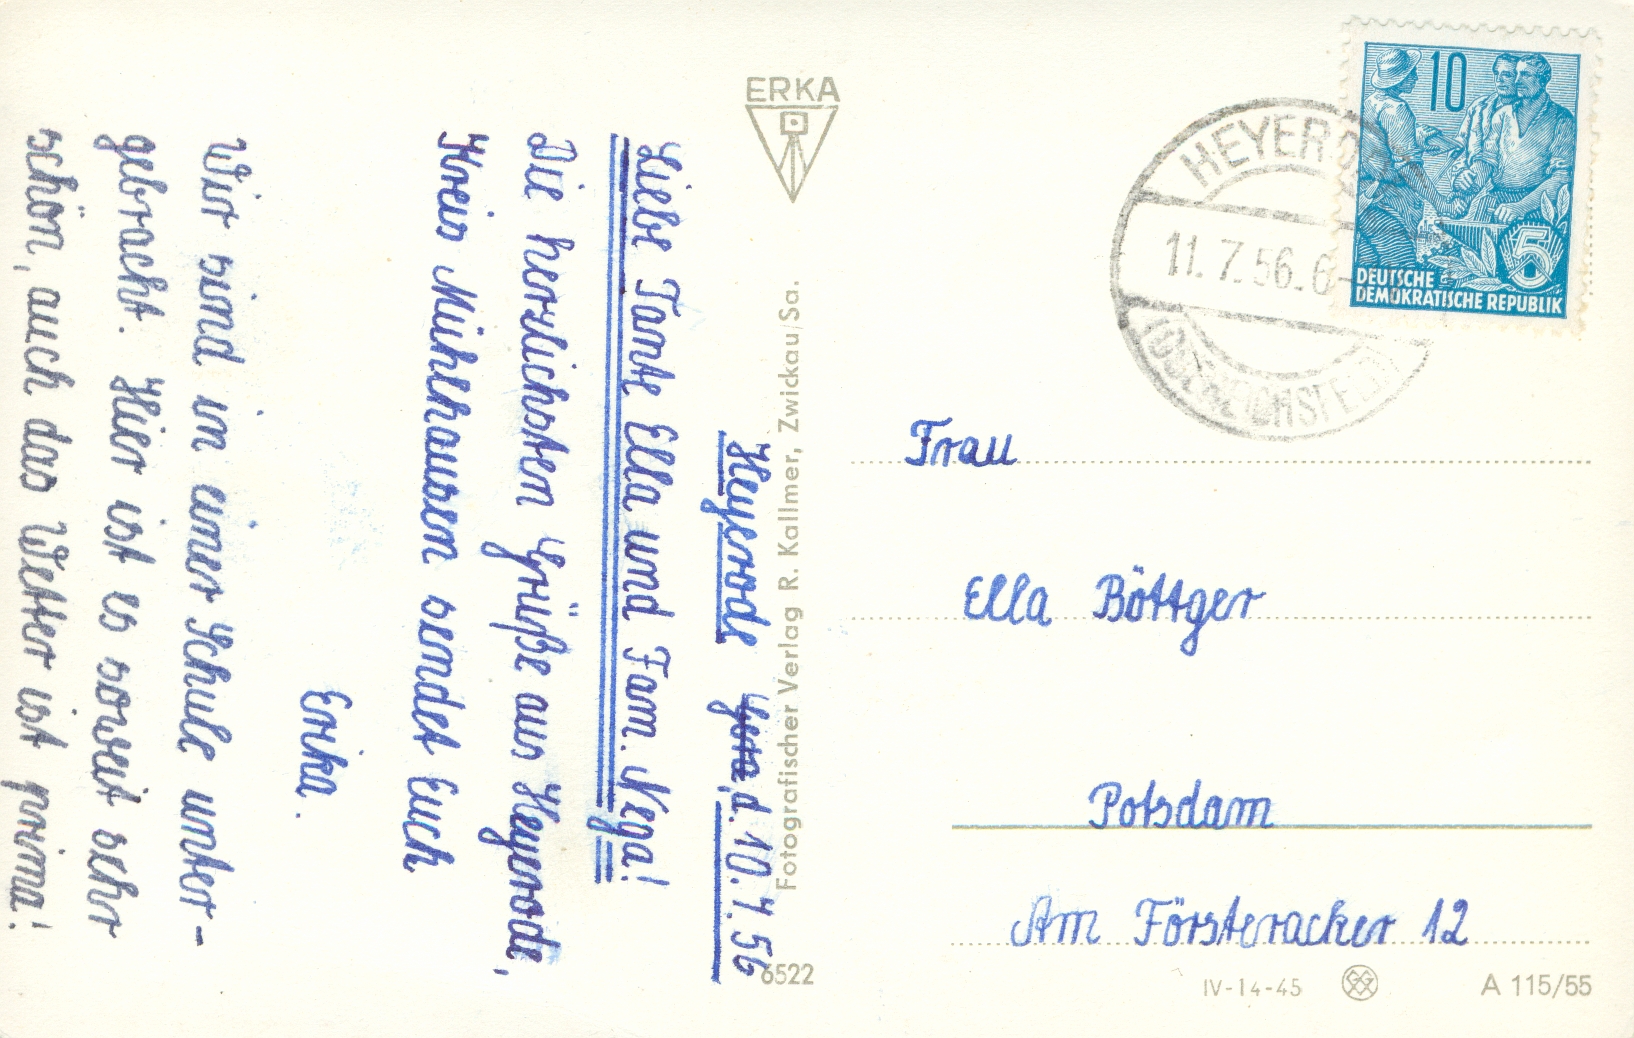 Heyerode Gera, d. 10.7.56
Liebe Tante Ella und Fam. Nega!
Die herzlichsten Grüße aus Heyerode,
Kreis Mühlhausen sendet Euch
Erika.
Wir sind in einer Schule unter-
gebracht. Hier ist es soweit sehr
schön, auch das Wetter ist prima!
ERKA
Fotografischer Verlag R. Kallmer, Zwickau/Sa.
6522
10
5
DEUTSCHE
DEMOKRATISCHE REPUBLIK
HEYERODE
11.7.56.6-
(OBEREICHSFELD)
Frau
Ella Böttger
Potsdam
Am Försteracker 12
IV-14-45
A 115/55